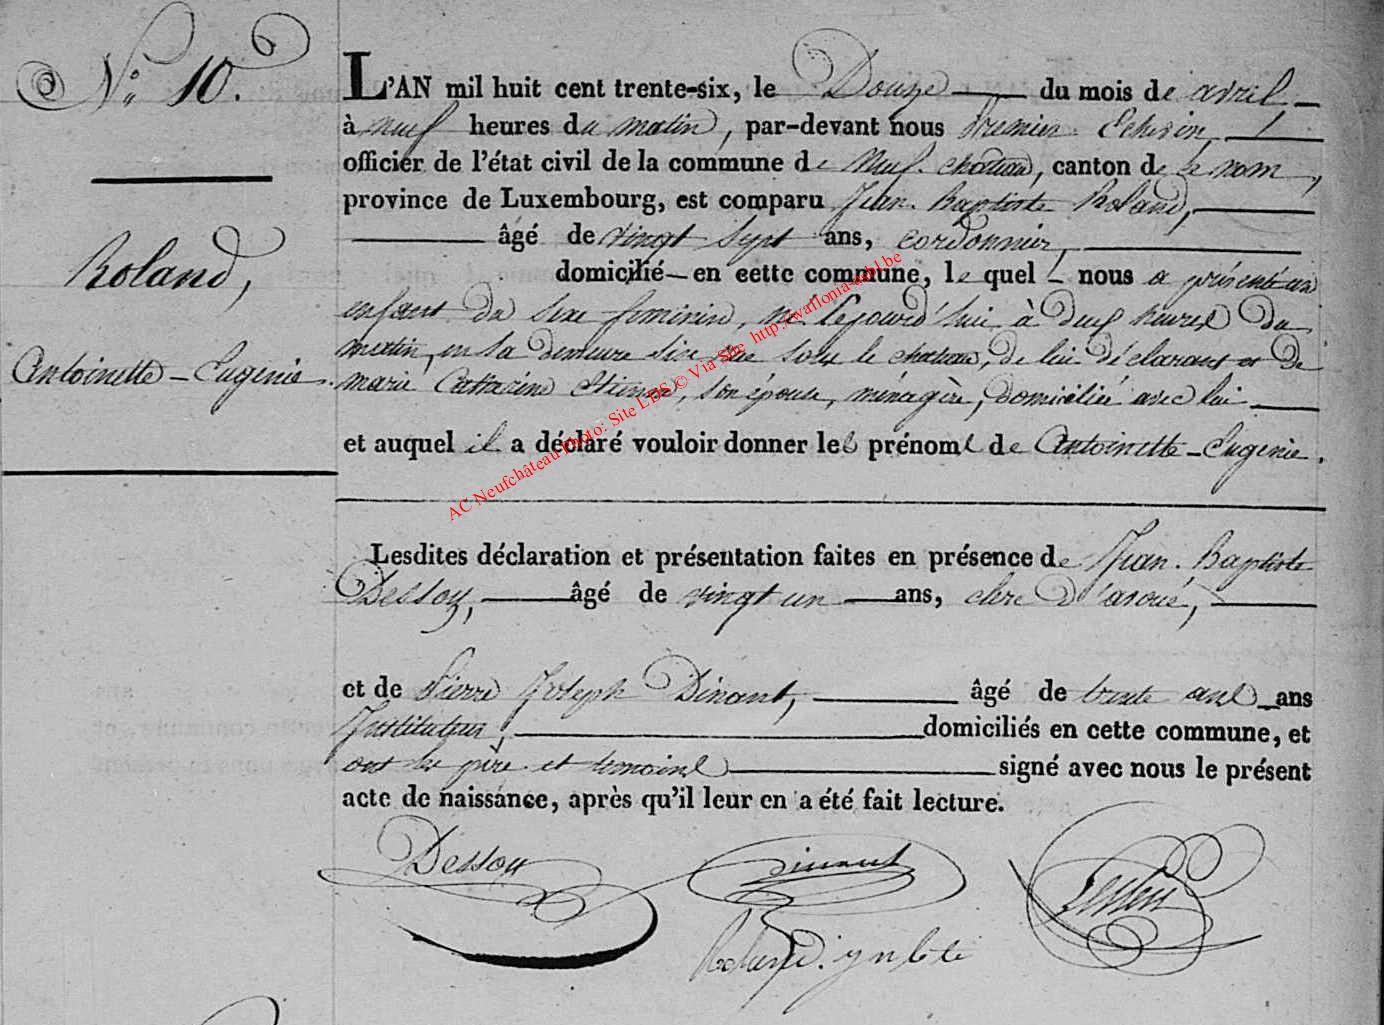 N° 10.
Roland,
Antoinette-Eugenie.
L'AN mil huit cent trente-six, le Douze du mois de avril
à neuf heures du matin, par-devant nous premier Echevin,
officier de l'état civil de la commune de Neufchateau, canton de ce nom,
province de Luxembourg, est comparu Jean-Baptiste Roland,
âgé de vingt sept ans, cordonnier,
domicilié en cette commune, lequel nous a présenté un
enfant du sexe feminin, né Cejourd'hui à deux heures du
matin, en sa demeure sise rue sous le chateau, de lui déclarant et de
marie Catharine Etienne, son épouse, ménagère, domiciliée avec lui
et auquel il a déclaré vouloir donner les prénoms de Antoinette-Eugenie.
Lesdites déclaration et présentation faites en présence de Jean-Baptiste
Dessoy, âgé de vingt un ans, clerc d'avoué,
et de Pierre Joseph Dinant, âgé de trente ans ans
Instituteur, domiciliés en cette commune, et
ont les père et temoins signé avec nous le présent
acte de naissance, après qu'il leur en a été fait lecture.
Dessoy Dinant
Roland
AC Neufchâteau Photo: Site LDS © Via Site http://wallonia-asbl.be